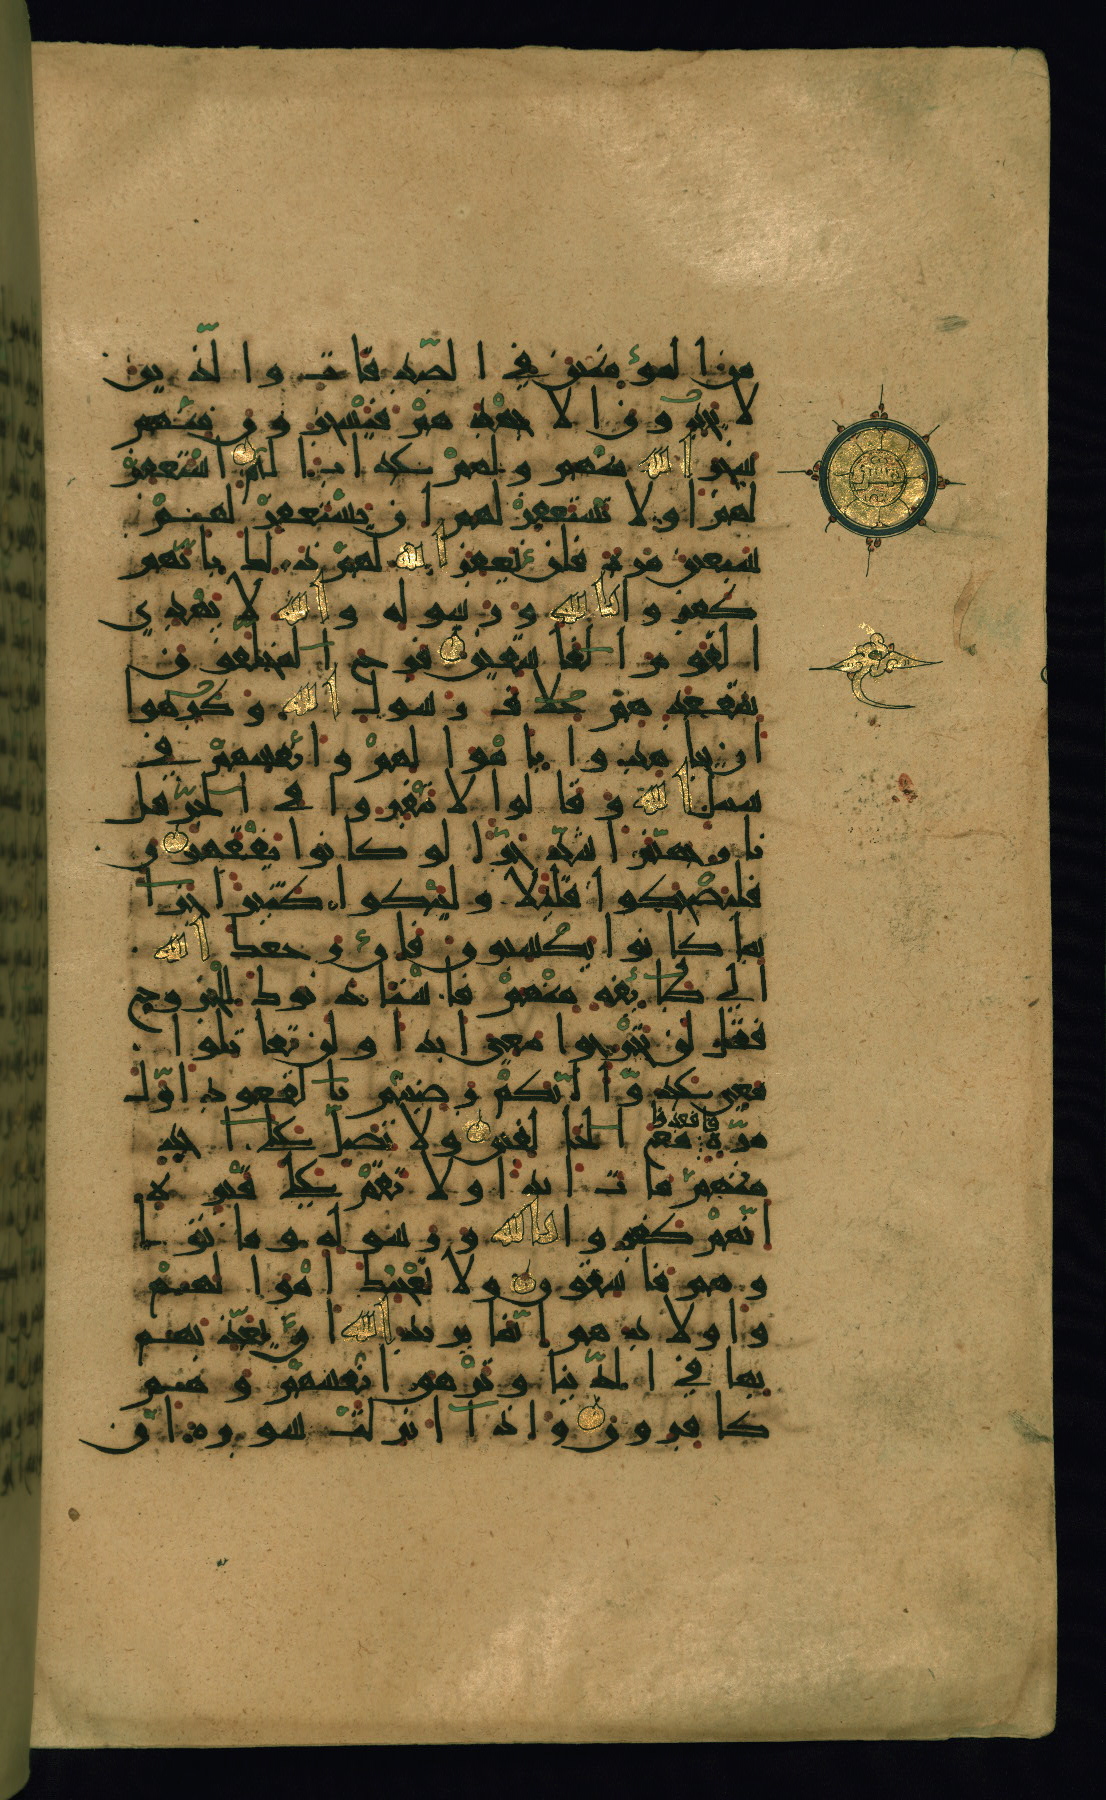 من المؤمنين في الصدقات والذين
لا يجدون الا جهدهم فيسخرون منهم
سخر الله منهم ولهم عذاب اليم استغفر
لهم او لا تستغفر لهم ان تستغفر لهم
سبعين مرة فلن يغفر الله لهم ذلك بانهم
كفروا بالله ورسوله والله لا يهدي
القوم الفاسقين فرح المخلفون
بمقعدهم خلاف رسول الله وكرهوا
ان يجاهدوا باموالهم وانفسهم في
سبيل الله وقالوا لا تنفروا في الحر قل
نار جهنم اشد حرّا لو كانوا يفقهون
فليضحكوا قليلا وليبكوا كثيرا جزا
بما كانوا يكسبون فان رجعك الله
الى طائفة منهم فاستاذنوك للخروج
فقل لن تخرجوا معي ابدا ولن تقاتلوا
معي عدوّا انّكم رضيتم بالقعود اوّل
مرّة فاقعدوا مع الخالفين ولا تصلّ على احد
منهم مات ابدا ولا تقم على قبره
انّهم كفروا بالله ورسوله وماتوا
وهم فاسقون ولا تعجبك اموالهم
واولادهم انّما يريد الله ان يعذّبهم
بها في الدّنيا وتزهق انفسهم وهم
كافرون واذا انزلت سورة ان